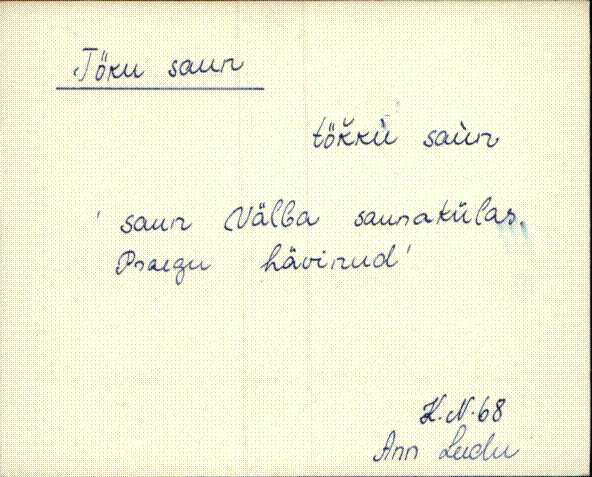 Töku saun
tökkù saùn
' saun Välba saunakülas.
Praegu hävinud'
K.N.68
Ann Leedu